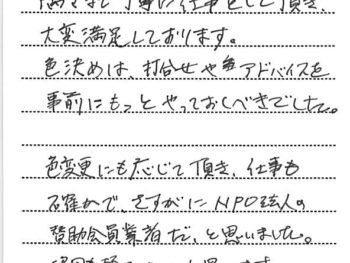 丁寧に仕事をして頂き、
大変満足しております。
色決めは、打合せや色アドバイスを
事前にもっとやっておくべきでした。
色変更にも応じて頂き、仕事も
確かで、さすがにNPO法人の
賛助会員業者だ、と思いました。